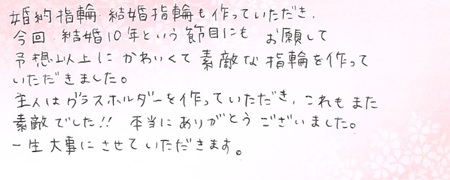 婚約指輪 結婚指輪も作っていただき、
今回 結婚10年という節目にも お願して
予想以上に かわいくて 素敵な 指輪を作って
いただきました。
主人はグラスホルダーを作っていただき、これもまた
素敵でした!! 本当にありがとう ございました。
一生大事にさせていただきます。